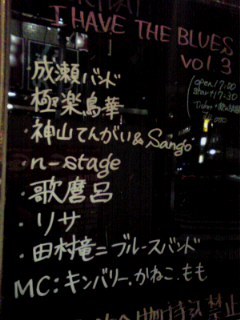 I HAVE THE BLUES
vol 3
open 17:00
start 17:30
成瀬バンド
極楽鳥華
・神山てんがい&Sango
・n-stage
・歌麿呂
・リサ
・田村竜二ブルースバンド
MC:キンバリー.かねこ.もも
禁止